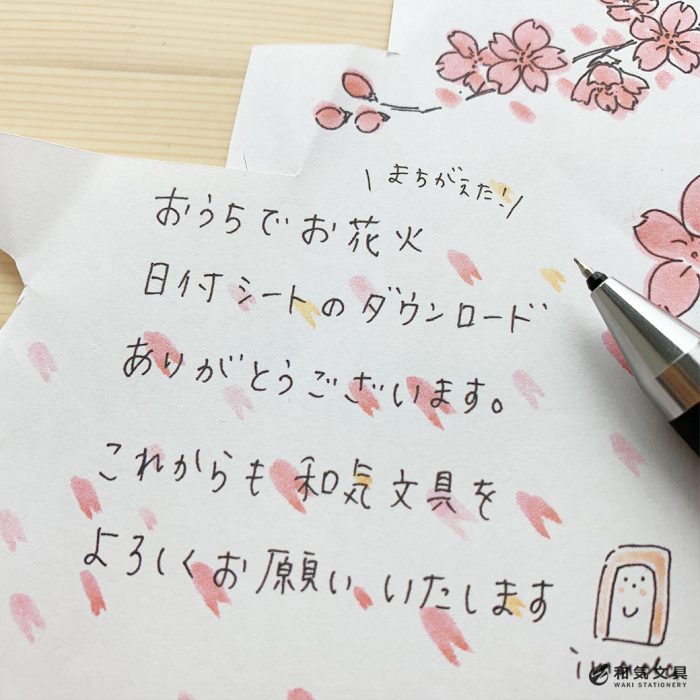 \ まちがえた! /
おうちでお花火
日付シートのダウンロード
ありがとうございます。
これからも和気文具を
よろしくお願いいたします
和気文具
WAKI STATIONERY